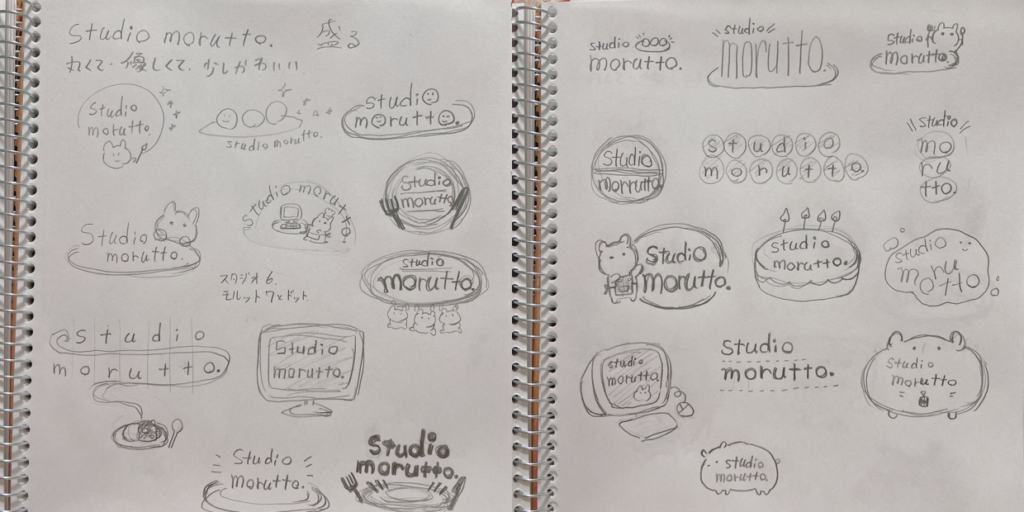 Studio morutto. 盛る
丸くて、優しくて、少しかわいい
Studio
morutto.
studio morutto.
studio
morutto.
Studio
morutto.
Studio morutto.
Studio
morutto.
スタジオ6.
モルットワェドット
studio
morutto.
@studio
morutto.
Studio
morutto.
Studio
morutto.
Studio
morutto.
studio
morutto.
studio
morutto.
Studio
morutto.
Studio
morrutto
studio
morutto.
studio
mo
ru
tto.
Studio
morutto.
Studio
morutto.
Studio
moru
tto
studio
morutto
Studio
morutto.
Studio
morutto
studio
morutto.